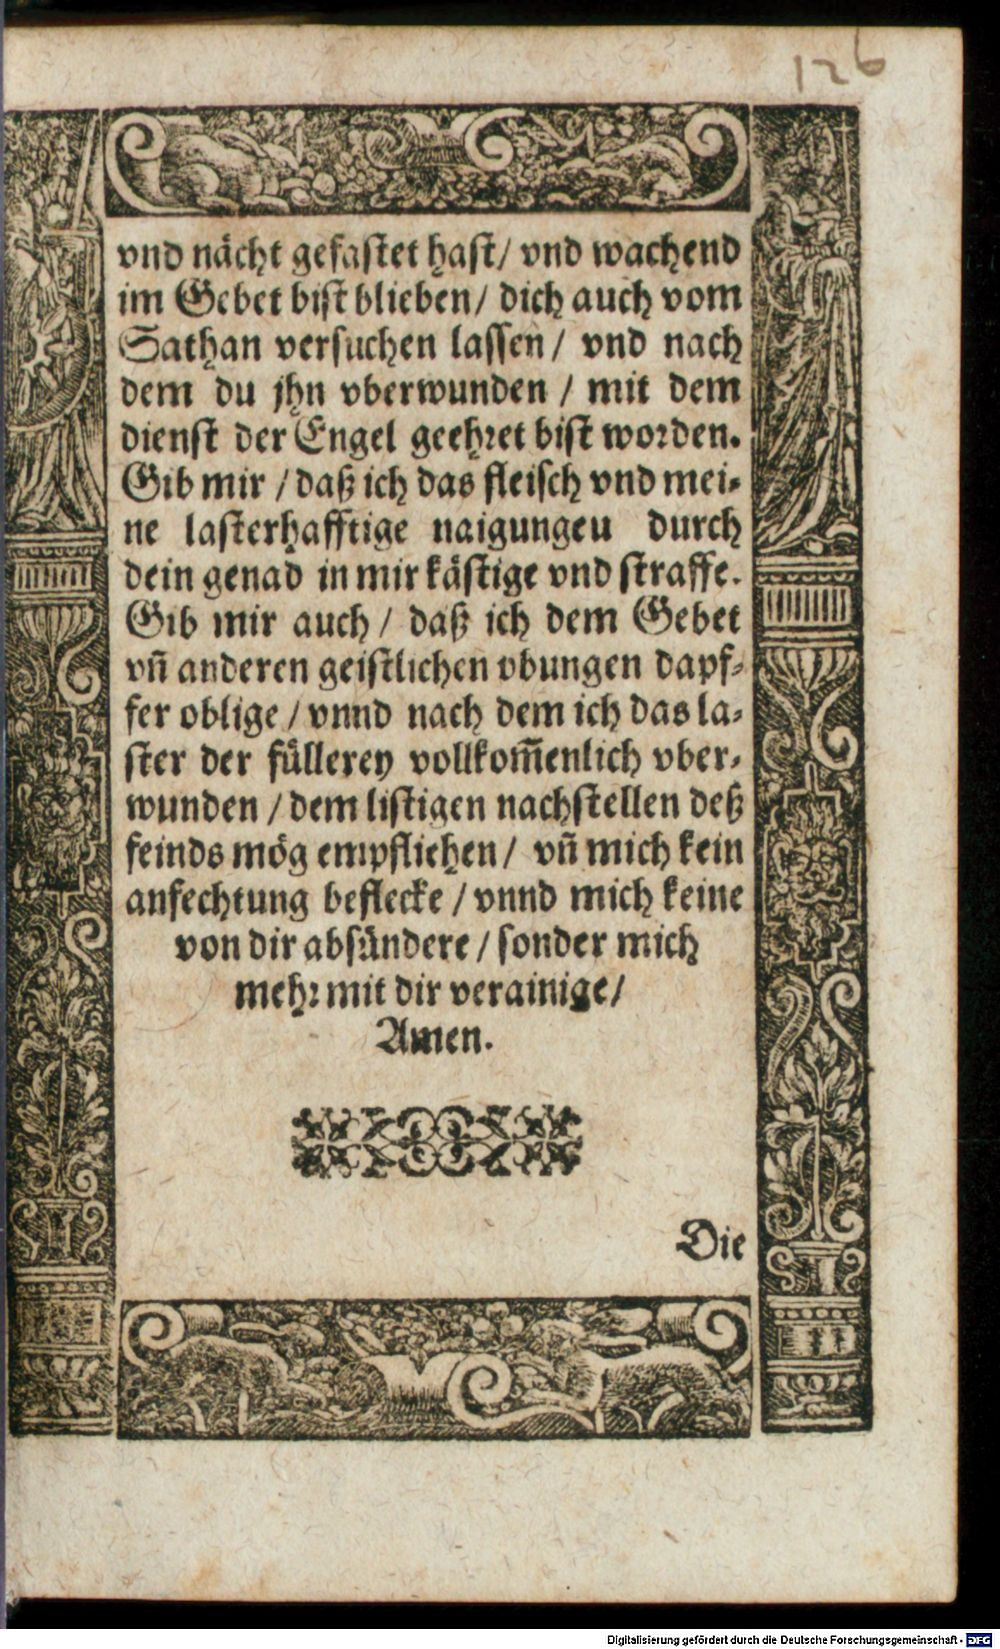 126
vnd nächt gefastet hast/ vnd wachend
im Gebet bist blieben/ dich auch vom
Sathan versuchen lassen/ vnd nach
dem du jhn vberwunden / mit dem
dienst der Engel geehret bist worden.
Gib mir / daß ich das fleisch vnd mei-
ne lasterhafftige naigungeu durch
dein genad in mir kästige vnd straffe.
Gib mir auch / daß ich dem Gebet
vñ anderen geistlichen vbungen dapf-
fer oblige / vnnd nach dem ich das la-
ster der füllerey vollkom̃enlich vber-
wunden / dem listigen nachstellen deß
feinds mög empfliehen / vñ mich kein
anfechtung beflecke / vnnd mich keine
von dir absündere / sonder mich
mehr mit dir verainige/
Amen.
Die
Digitalisierung gefördert durch die Deutsche Forschungsgemeinschaft - DFG